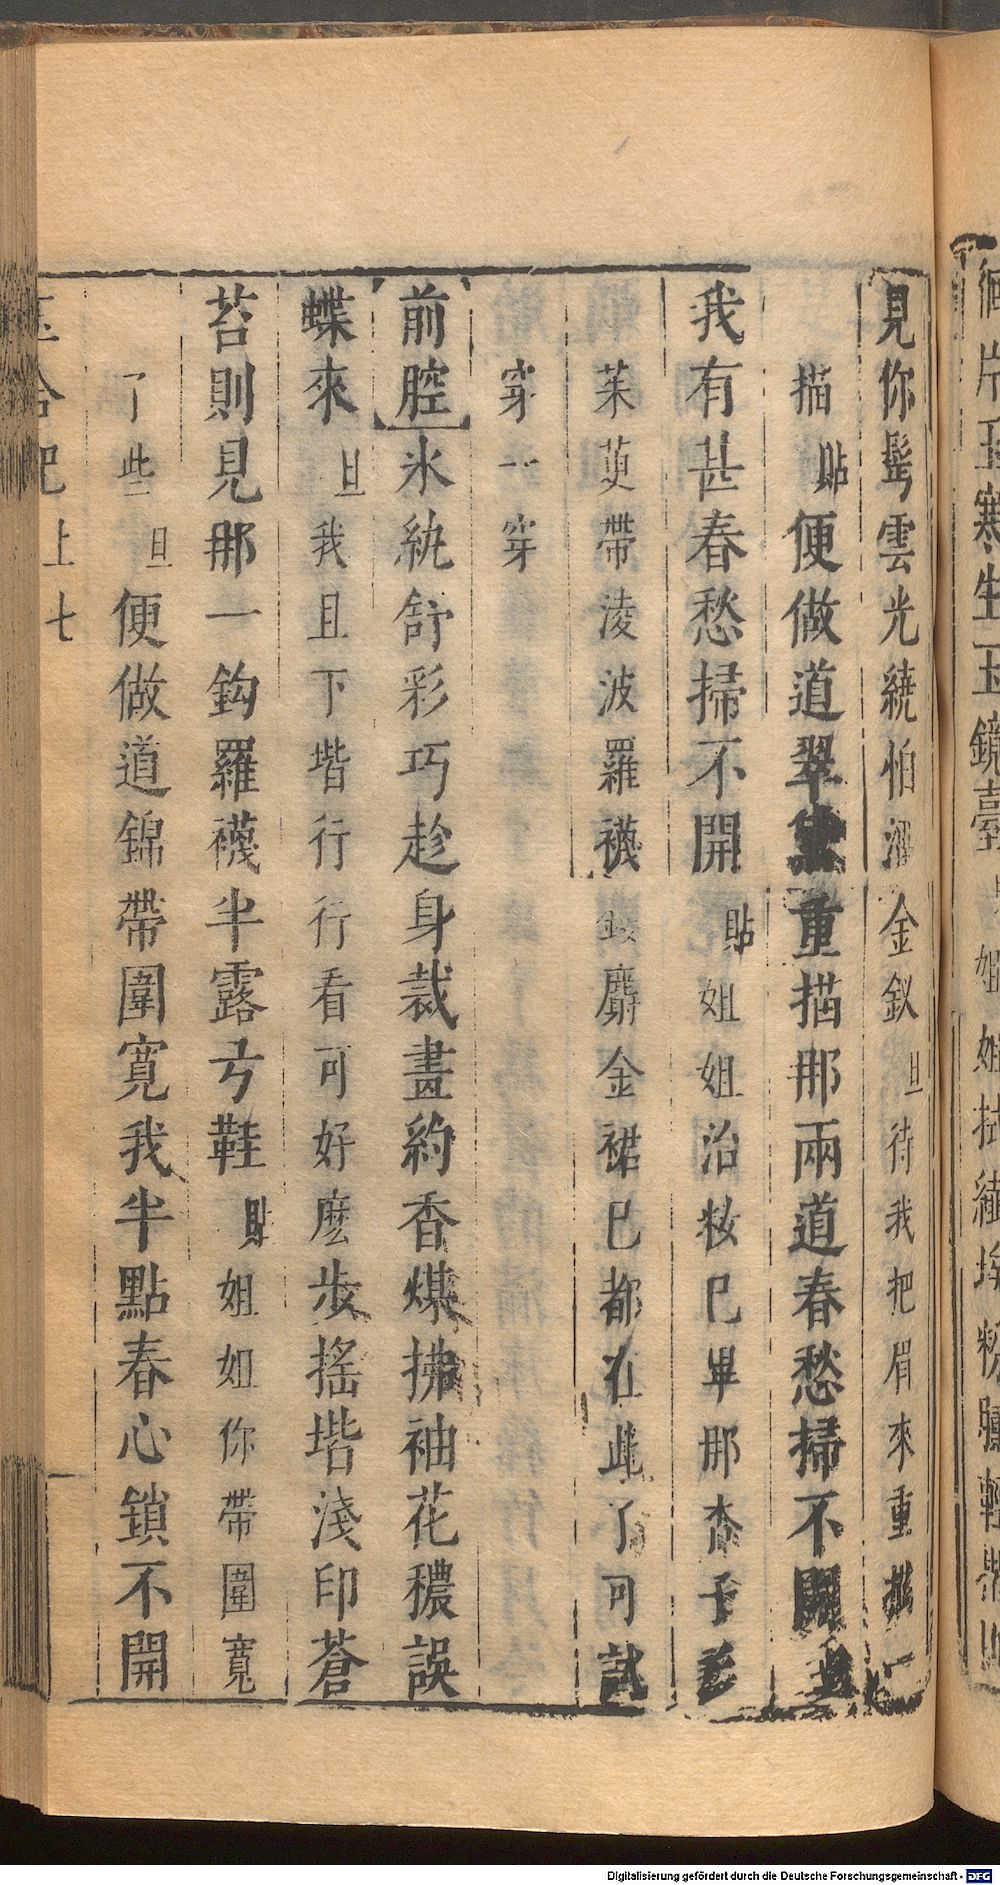 見你髩雲光繞怕溜金釵旦待我把眉來重描一
描貼便做道翠黛重描那兩道春愁掃不開
我有甚春愁掃不開貼姐姐治妝已畢那杏子
茱萸帶淩波羅襪麝金裙已都在此了可試
穿一穿
前腔氷紈舒彩巧趁身裁畫約香煤拂袖花穠誤
蝶來旦我且下堦行行看可好麽步搖堦淺印蒼
苔則見那一鈎羅襪半露弓鞋貼姐姐你帶圍寬
了些旦便做道錦帶圍寬我半點春心鎖不開
玉合記上七
片玉寒生玉鏡臺
Digitalisierung gefördert durch die Deutsche Forschungsgemeinschaft - DFG